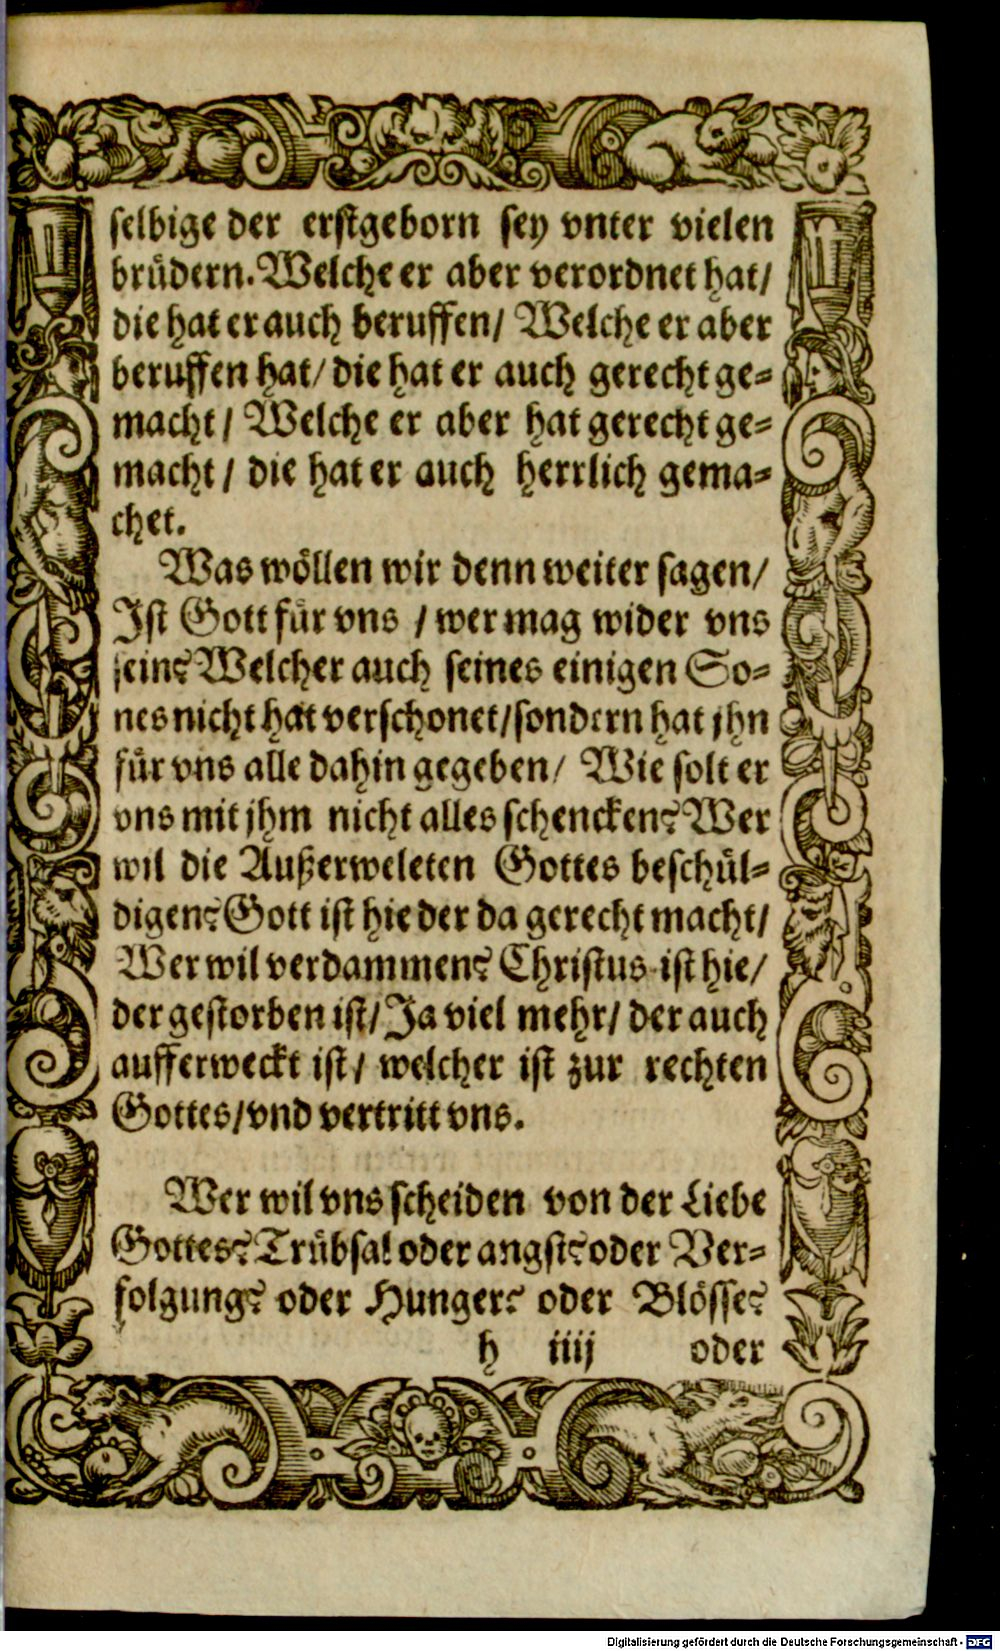 selbige der erstgeborn sey vnter vielen
brüdern. Welche er aber verordnet hat/
die hat er auch beruffen/ Welche er aber
beruffen hat/ die hat er auch gerecht ge-
macht/ Welche er aber hat gerecht ge-
macht/ die hat er auch herrlich gema-
chet.
Was wöllen wir denn weiter sagen/
Ist Gott für vns / wer mag wider vns
sein? Welcher auch seines einigen So-
nes nicht hat verschonet/ sondern hat jhn
für vns alle dahin gegeben/ Wie solt er
vns mit jhm nicht alles schencken? Wer
wil die Außerweleten Gottes beschül-
digen? Gott ist hie der da gerecht macht/
Wer wil verdammen? Christus ist hie/
der gestorben ist/ Ja viel mehr/ der auch
aufferweckt ist/ welcher ist zur rechten
Gottes/ vnd vertritt vns.
Wer wil vns scheiden von der Liebe
Gottes? Trübsal oder angst? oder Ver-
folgung? oder Hunger? oder Blösse?
h iiij oder
Digitalisierung gefördert durch die Deutsche Forschungsgemeinschaft - DFG